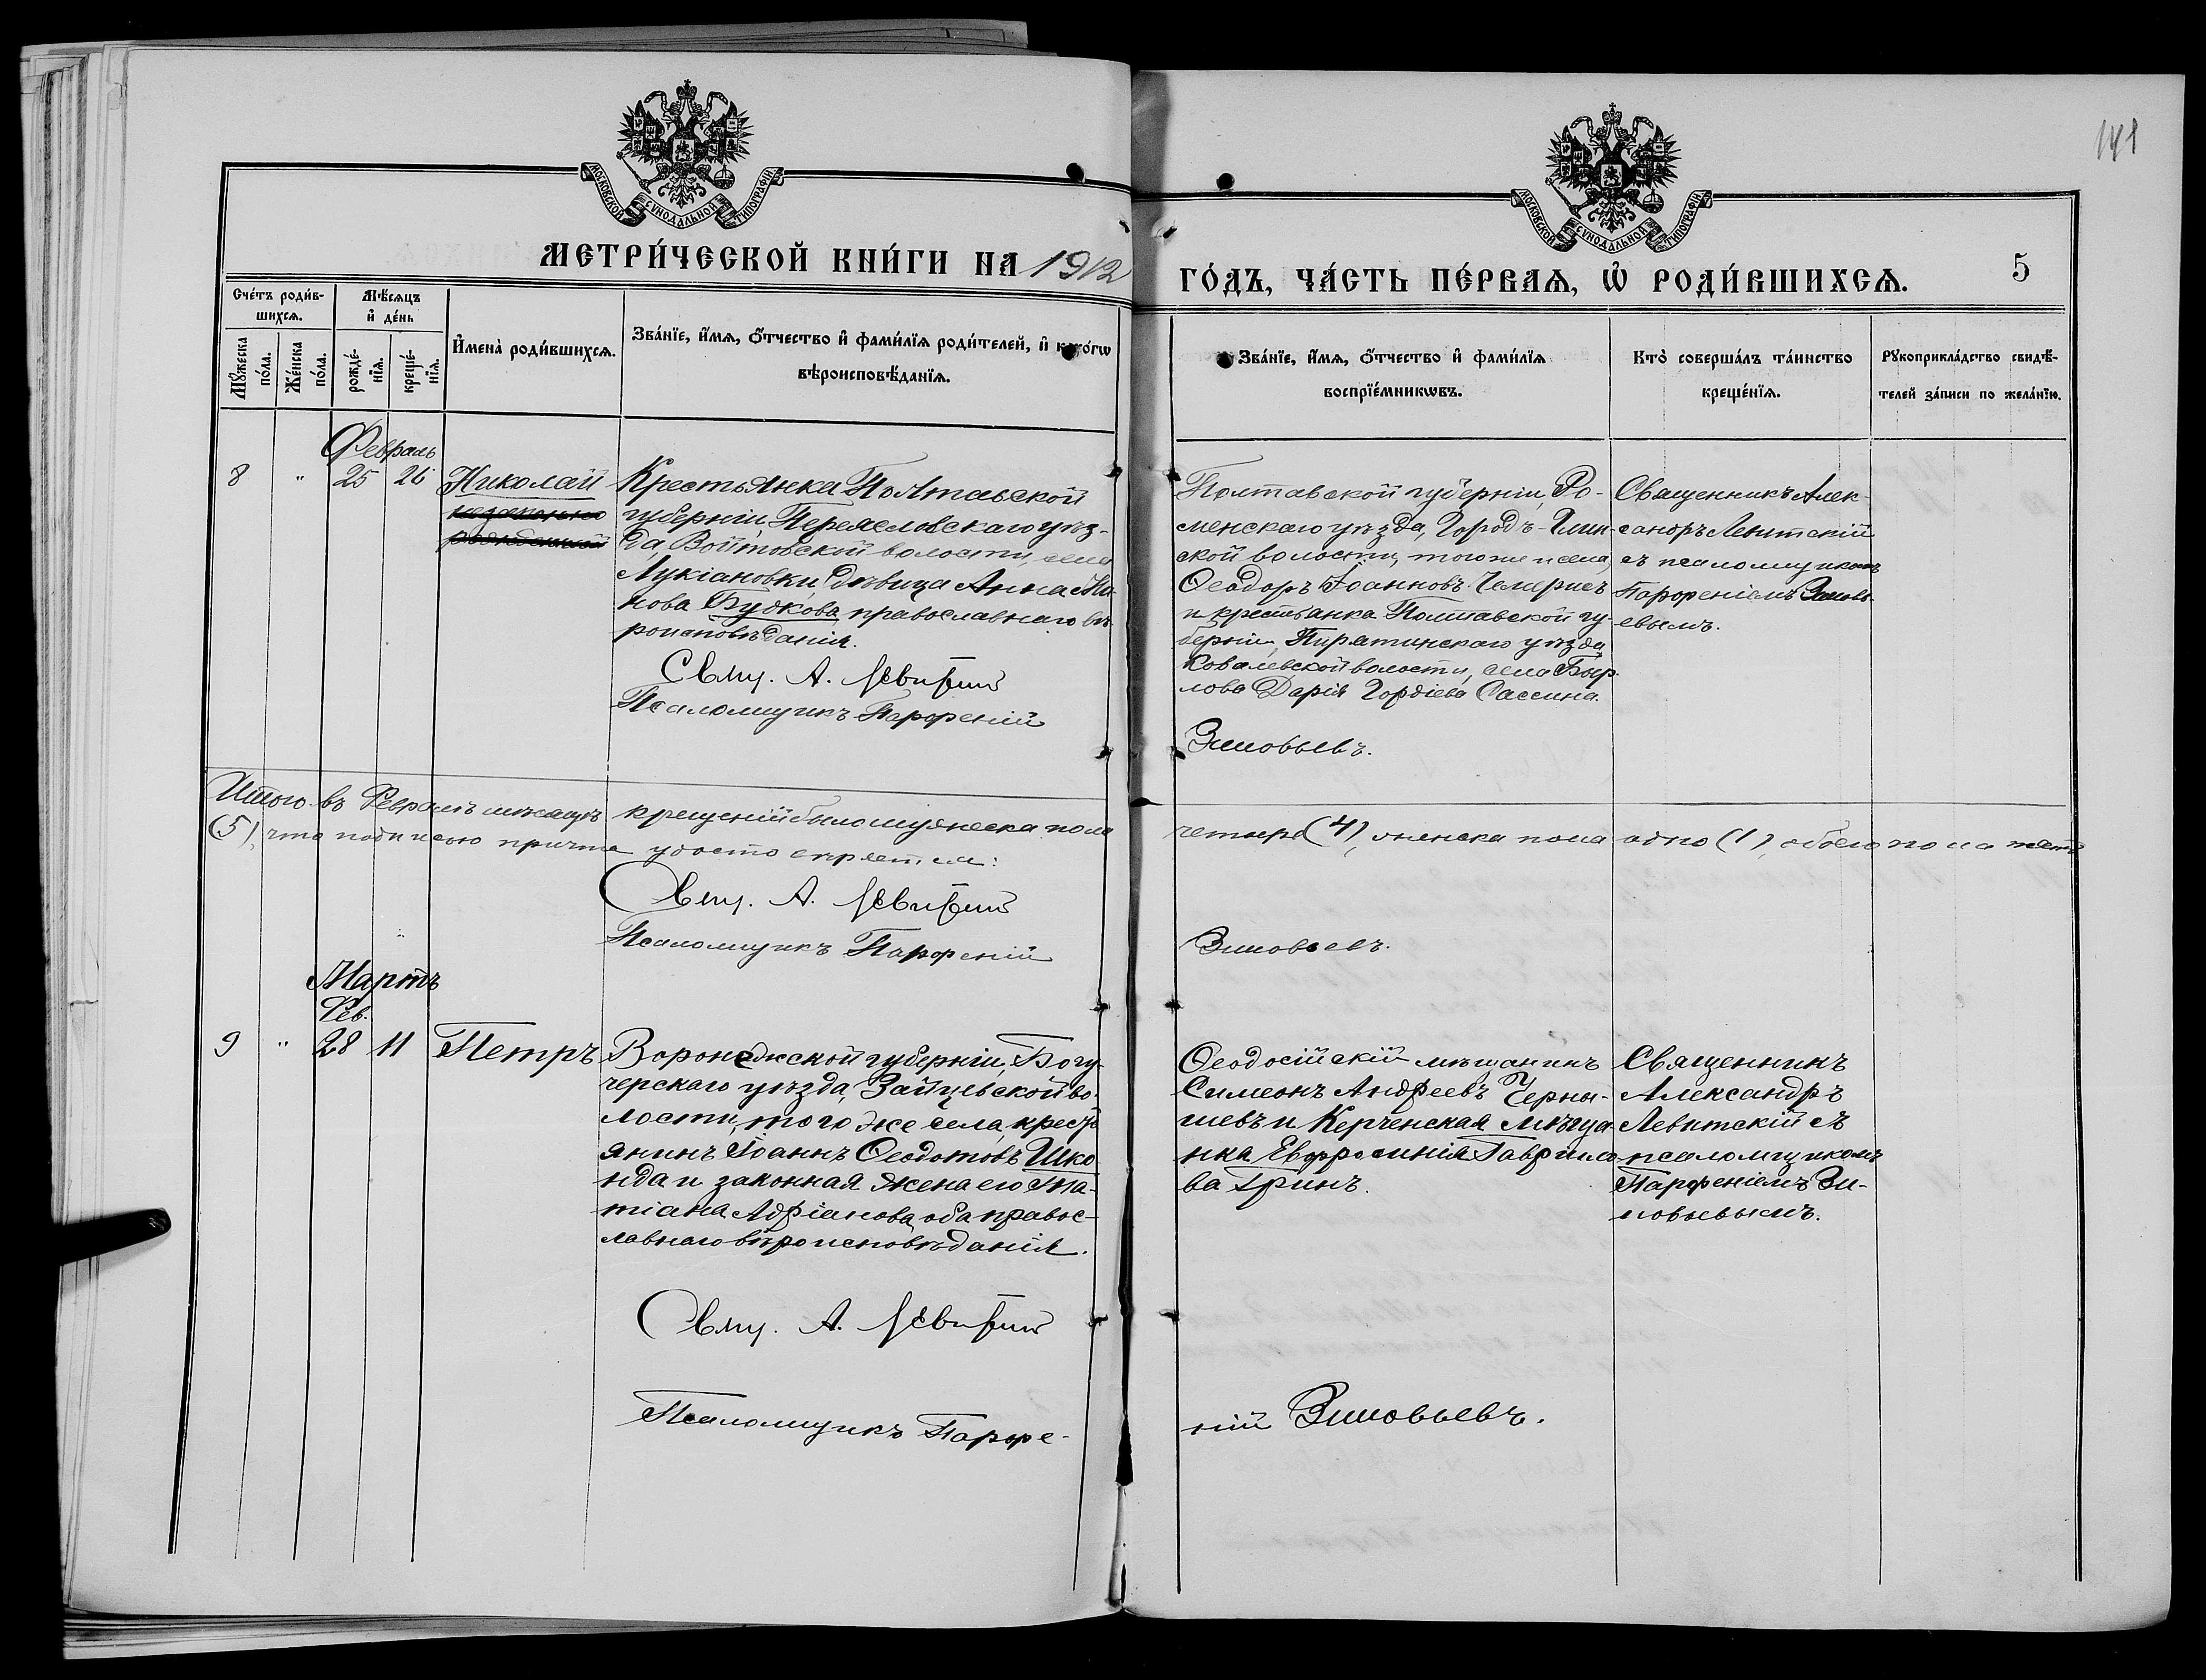 141
МОСКОВСКОЙ СѴНОДАЛЬНОЙ ТИПОГРАФІИ
МОСКОВСКОЙ СѴНОДАЛЬНОЙ ТИПОГРАФІИ
МЕТРИ́ЧЕСКОЙ КНИ́ГИ НА 1912
ГО́ДЪ, ЧА́СТЬ ПЕ́РВАѦ, Ѡ҆ РОДИ́ВШИХСѦ.
5
Сче́тъ роди́в-
шихсѧ.
Мꙋ́жеска по́ла.
Же́нска по́ла.
Мѣ́сѧцъ
и҆ де́нь
рожде́-
нїѧ.
креще́-
нїѧ.
И҆мена̀ роди́вшихсѧ.
Зва́нїе, и҆́мѧ, ѻ҆́тчество и҆ фами́лїѧ роди́телей, и҆ како́гѡ
вѣроисповѣ́данїѧ.
Зва́нїе, и҆́мѧ, ѻ҆́тчество и҆ фами́лїѧ
воспрїе́мникѡвъ.
Кто̀ соверша́лъ та́инство
креще́нїѧ.
Рꙋкоприкла́дство свидѣ́-
телей за́писи по жела́нїю.
Февраль
8 " 25 26 Николай
незаконно
рожденный
Крестьянка Полтавской
губерніи, Переяславскаго уѣз-
да Войтовской волости, села
Лукіановки, дѣвица Анна
нова Будкова, православнаго вѣ-
роисповѣданія.
Свящ. А. Левитскій
Псаломщикъ Парфеній
Полтавской губерніи, Ро-
менскаго уѣзда, Городъ-Глин-
ской волости, того же села,
Ѳеодоръ Іоанновъ Чемерисъ
и крестьянка Полтавской гу-
берніи, Пирятинскаго уѣзда
Ковалевской волости, села Быр-
лова Дарія Гордіева Сассина.
Зиновьевъ.
Священникъ Алек-
сандръ Левитскій
съ псаломщикомъ
Парфеніемъ Зиновь-
евымъ.
Итого въ Февралѣ мѣсяцѣ крещеній было мужеска пола четыре (4), женска пола одно (1), обоего пола пять
(5), что подписью причта удостовѣряемъ:
Свящ. А. Левитскій
Псаломщикъ Парфеній
Зиновьевъ.
Мартъ
Фев.
9 " 28 11 Петръ
Воронежской губерніи, Богу-
черскаго уѣзда, Зайцевской во-
лости, того же села, крестъ
янинъ Іоаннъ Ѳеодотовъ Шко
нда и законная жена его Та-
тіана Адріанова, оба правос-
лавнаго вѣроисповѣданія.
Свящ. А. Левитскій
Псаломщикъ Парфе-
Ѳеодосійскій мѣщанинъ
Симеонъ Андреевъ Черны-
шевъ и Керченская мѣща-
нка Евфросинія Гаврило-
ва Гринъ.
ній Зиновьевъ.
Священникъ
Александръ
Левитскій съ
псаломщикомъ
Парфеніемъ Зи-
новьевымъ.